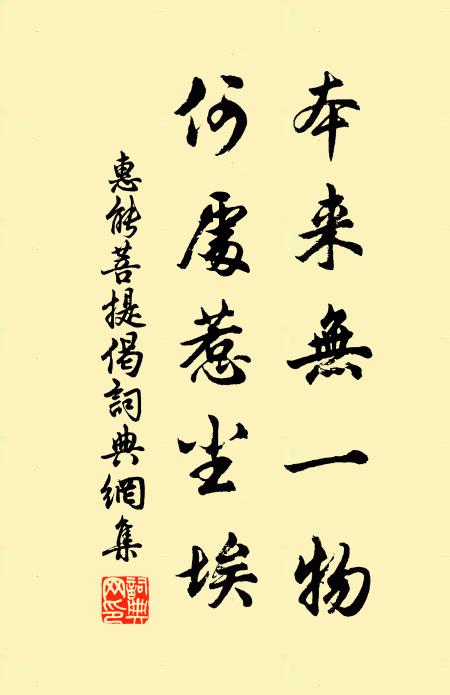 本来無一物
何處惹尘埃
惠能菩提偈詞典網集
詞典網印